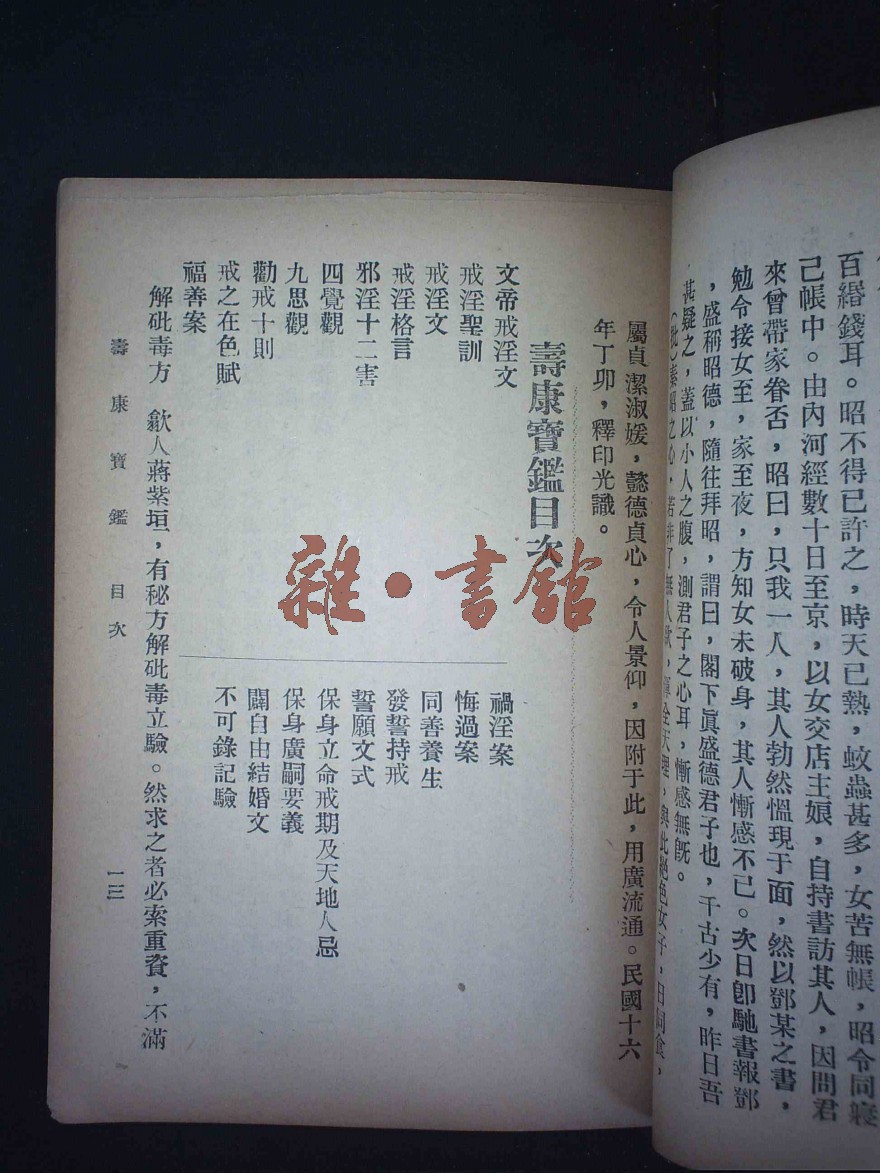 百緡錢耳。昭不得已許之，時天已熱，蚊蟲甚多，女苦無帳，昭令同寢
己帳中。由內河經數十日至京，以女交店主娘，自持書訪其人，因問君
來曾帶家眷否，昭曰，只我一人，其人勃然慍現于面，然以鄧某之書，
勉令接女至，家至夜，方知女未破身，其人慚感不已。次日卽馳書報鄧
，盛稱昭德，隨往拜昭，謂曰，閣下眞盛德君子也，千古少有，昨日吾
甚疑之，蓋以小人之腹，測君子之心耳，慚感無旣。
（批）秦昭之心，若非了無人欲，渾全天理，與此絕色女子，日同食，
屬貞潔淑媛，懿德貞心，令人景仰，因附于此，用廣流通。民國十六
年丁卯，釋印光識。
壽康寶鑑目次
文帝戒淫文
戒淫聖訓
戒淫文
戒淫格言
邪淫十二害
四覺觀
九思觀
勸戒十則
戒之在色賦
福善案
禍淫案
悔過案
同善養生
發誓持戒
誓願文式
保身立命戒期及天地人忌
保身廣嗣要義
闢自由結婚文
不可錄記驗
解砒毒方　歙人蔣紫垣，有秘方解砒毒立驗。然求之者必索重資，不滿
壽康寶鑑　目次　一三
雜·書館